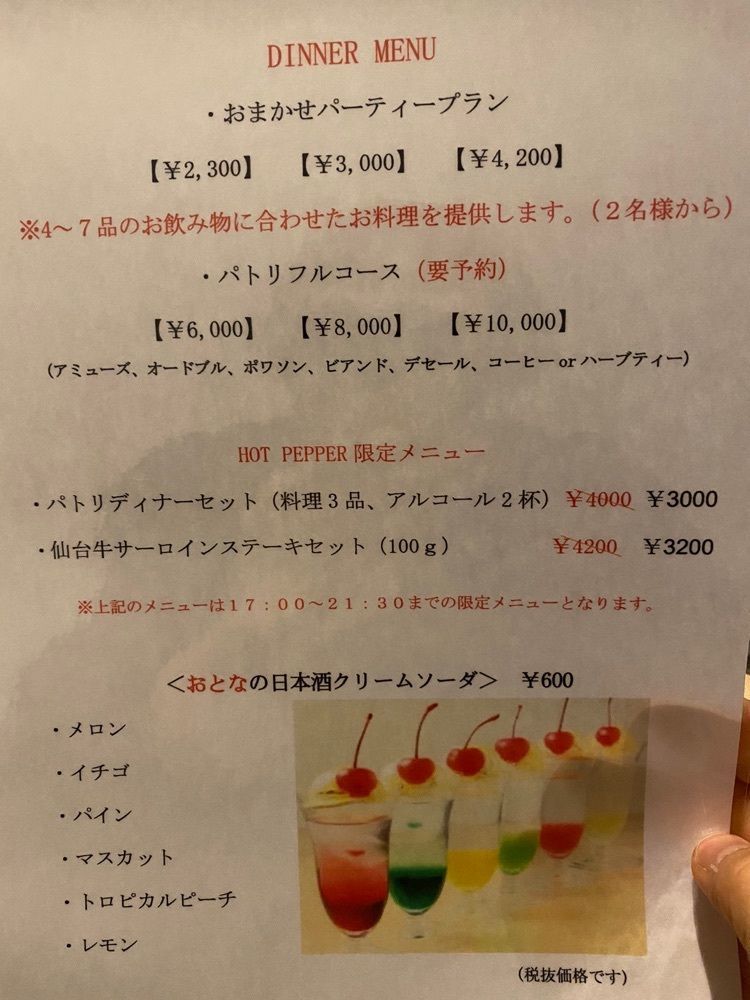 DINNER MENU
・おまかせパーティープラン
【￥2,300】 【￥3,000】 【￥4,200】
※4～７品のお飲み物に合わせたお料理を提供します。（２名様から）
・パトリフルコース（要予約）
【￥6,000】 【￥8,000】 【￥10,000】
（アミューズ、オードブル、ポワソン、ビアンド、デセール、コーヒーorハーブティー）
HOT PEPPER 限定メニュー
・パトリディナーセット（料理３品、アルコール２杯） ￥4000 ￥3000
・仙台牛サーロインステーキセット（100ｇ） ￥4200 ￥3200
※上記のメニューは１７：００～２１：３０までの限定メニューとなります。
＜おとなの日本酒クリームソーダ＞ ￥600
・メロン
・イチゴ
・パイン
・マスカット
・トロピカルピーチ
・レモン
（税抜価格です）